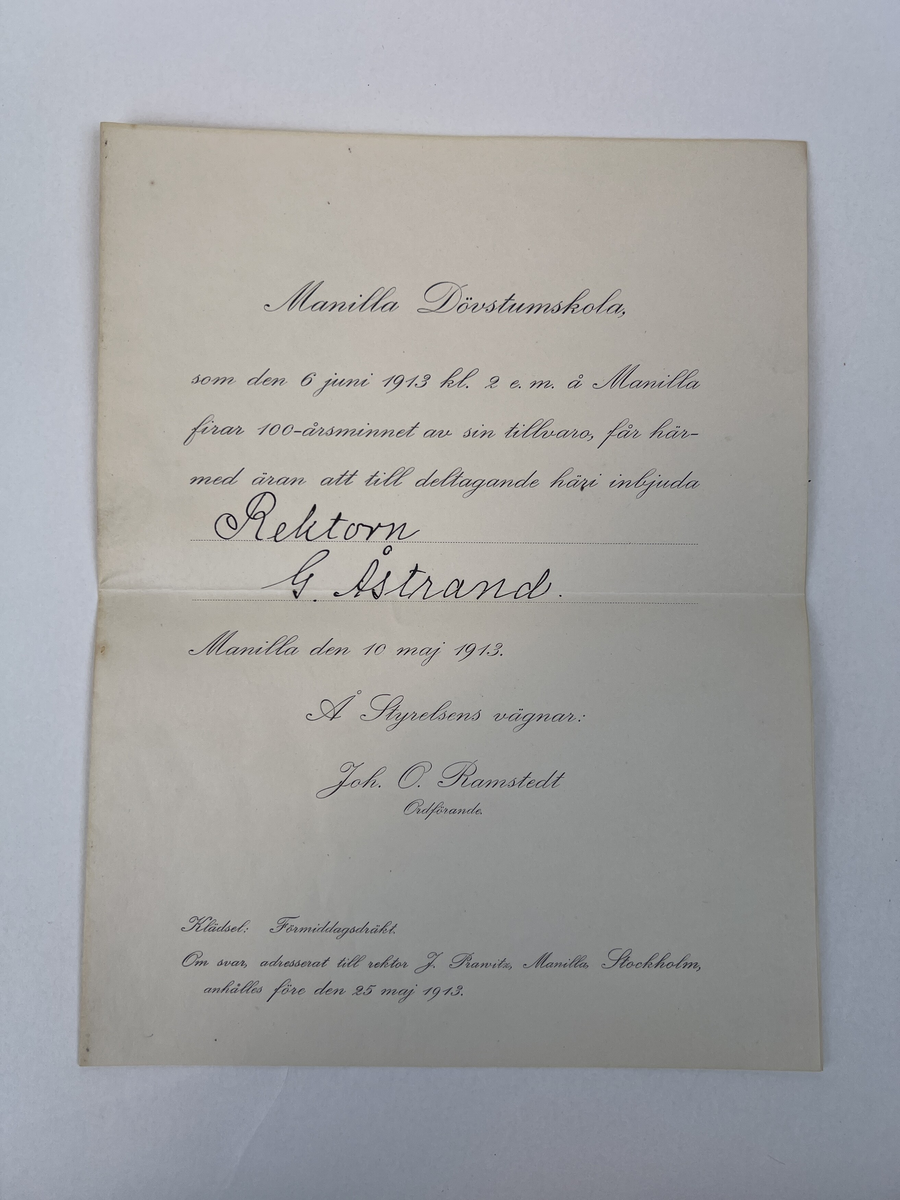 Manilla Dövstumskola,
som den 6 juni 1913 kl. 2 e. m. å Manilla
firar 100-årsminnet av sin tillvaro, får här-
med äran att till deltagande häri inbjuda
Rektorn
G. Åstrand.
Manilla den 10 maj 1913.
Å Styrelsens vägnar:
Joh. O. Ramstedt
Ordförande.
Klädsel: Förmiddagsdräkt.
Om svar, adresserat till rektor J. Prawitz, Manilla, Stockholm,
anhålles före den 25 maj 1913.